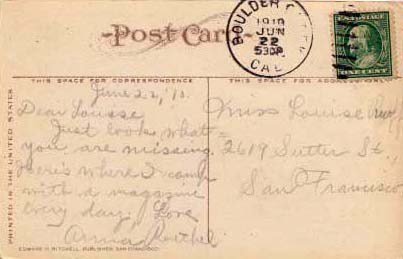 Post Card
BOULDER CREEK
1910
JUN
22
530P
CAL
U.S. POSTAGE
ONE CENT
THIS SPACE FOR CORRESPONDENCE
THIS SPACE FOR ADDRESS ONLY
June 22, '10.
Dear Louise,
Just look what
you are missing.
Here's where I come
with a magazine
every day. Love
Anna
Miss Louise
2619 Sutter St.,
San Francisco
PRINTED IN THE UNITED STATES
EDWARD H. MITCHELL, PUBLISHER, SAN FRANCISCO